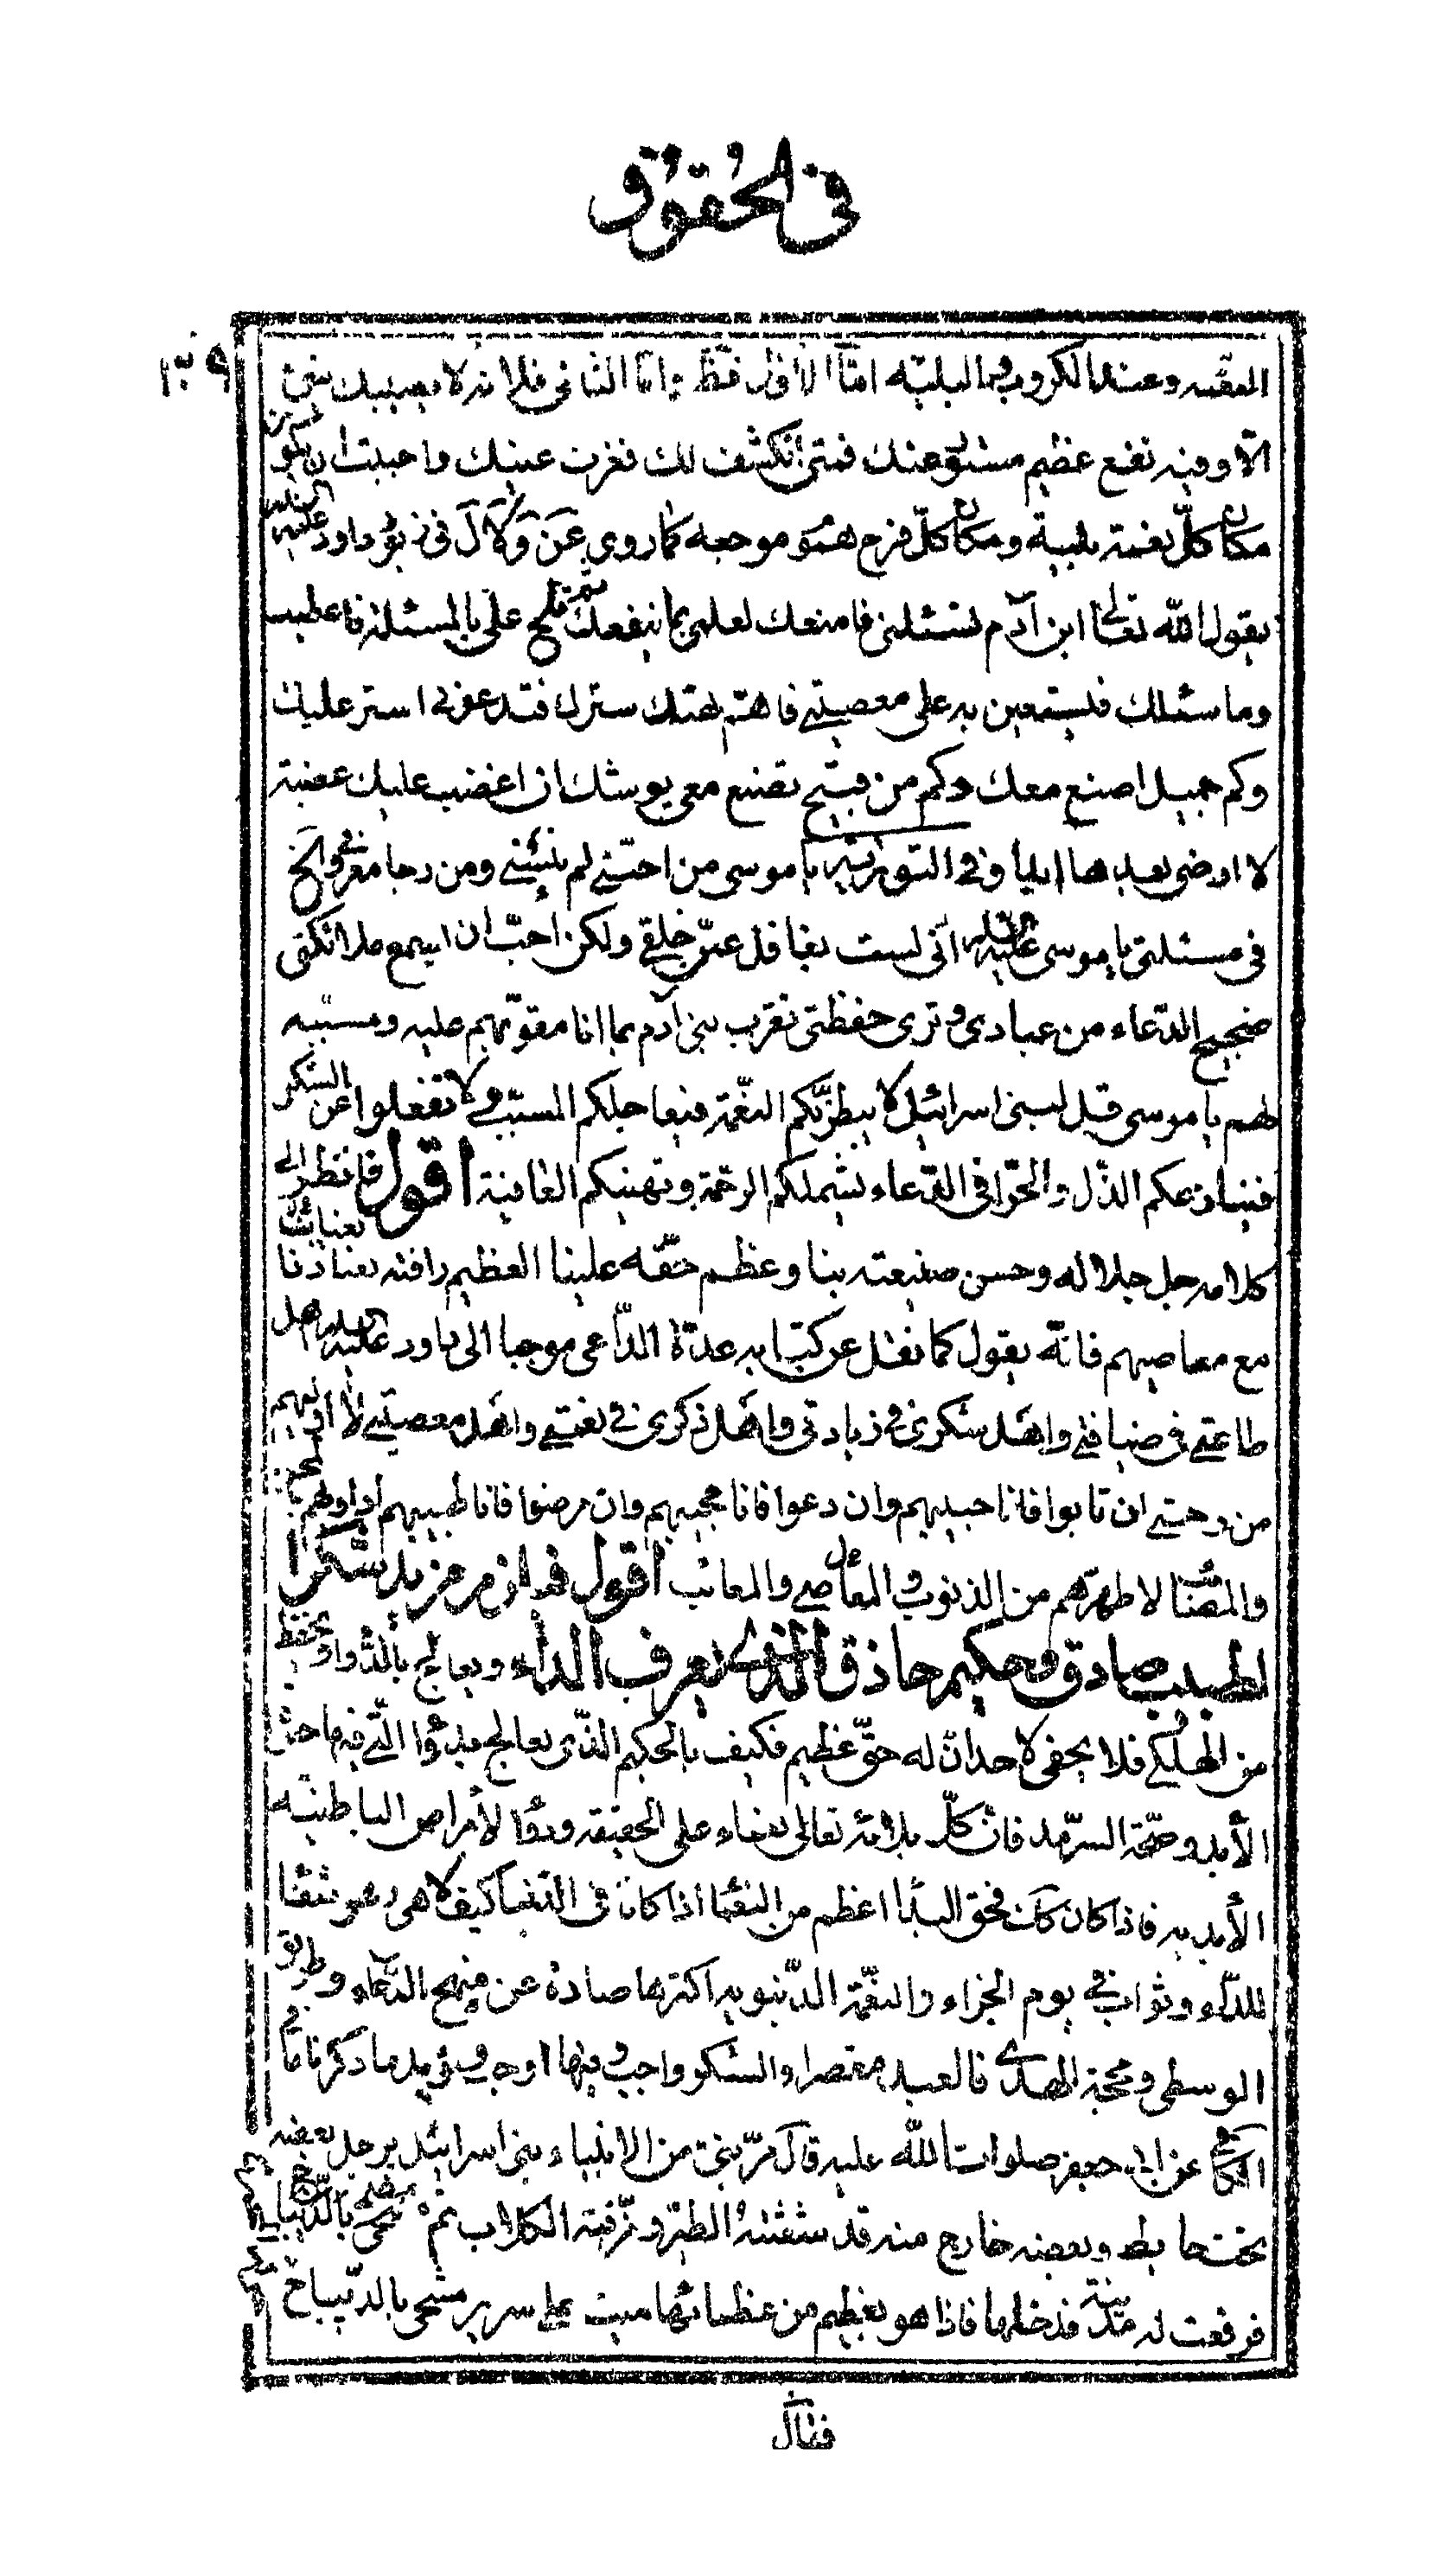 فى الحُقوُق
١٣٩
النقمة وعند الكروب والبليّه امّا الأوّل فظ وامّا الثانى فلانه لا يصيبك شئ
الّا وفيه نفع عظيم مستور عنك فمتى انكشف لك فقرت عينك واحببت ان يكون
مكان كلّ نعمة بلية ومكان كلّ فرح هموم موجعه كما روى عن وَكلّ فى زبور داود عليه السلام
يقول الله تعالى ابن آدم تسئلنى فامنعك لعلمى بما ينفعك ثم تلح علىّ بالمسئلة فاعطيك
وما سئلك فتستعين به على معصيتى فاهمّ بهتك سترك فتدعونى استر عليك
وكم جميل اصنع معك وكم من قبيح تصنع معى يوشك ان اغضب عليك غضبة
لا ارضى بعدها ابدا وفى التورية يا موسى من احبّنى لم ينسنى ومن رجا معروفى الح
فى مسئلتى يا موسى عليه السلام انّى لست بغافل عن خلقى ولكن احبّ ان اسمع ملائكتى
ضجيج الدّعاء من عبادى وترى حفظتى تقرب بنى آدم بما انا مقوّيهم عليه ومسببه
لهم يا موسى قل لبنى اسرائيل لا يبطرنّكم النّعمة فيعاجلكم السلب ولا تغفلوا عن الشكر
فيقارعكم الذّل والحّوا فى الدّعاء يشملكم الرحمة وتهنيكم العافية اقول فانظر الى
كلامه جل جلاله وحسن صنيعته بنا وعظم حقّه علينا العظيم رافته بعباده
مع معاصيهم فانّه يقول كما نقل عن كتابه عدّة الدّاعى موحيا الى داود عليه السلام اهل
طاعتى فى ضيافتى واهل شكرى فى زيادتى واهل ذكرى فى نعمتى واهل معصيتى لا أويسهم
من رحمتى ان تابوا فانا حبيبهم وان دعوا فانا مجيبهم وان مرضوا فانا طبيبهم اداويهم بالمحن
والمصائب لاطهرّهم من الذنوب والمعاصى والمعائب اقول
لطبيب صادق وحكيم حاذق الذى يعرف الداء ويعالج بالدّواء ويحفظ
من المهلكى فلا يخفى لاحد انّ له حقّ عظيم فكيف بالحكيم الذّى يعالج بدواء الّتى فيها حيوة
الأبد وصحّة السرّمد فانّ كلّ بلائه تعالى نعماء على الحقيقة ودواء لأمراض الباطنيّه
الأبديه فاذا كان كان فحق البلايا اعظم من النعماء اذا كانا فى الدّنيا كيف لا هى وهو شفاء
للدّاء وثواب فى يوم الجزاء والنعّمة الدّنيويه اكثرها صادة عن منهج النّجاة وطريق
الوسطى ومحجة الهدى فالعبد مقصر والشكر واجب وفيها اوجب ويؤيد ما ذكرنا ما فى
الكافى عن ابى جعفر صلوات الله عليه قال مرّ نبىّ من الانبياء بنى اسرائيل برجل بعضه
تحت حايط وبعضه خارج منه قد شعثته الطير ومزّقته الكلاب ثم مضى
فرفعت له مدينة فدخلها فاذا هو بعظيم من عظمائها ميت على سرير مسجّى بالدّيباج
فقال